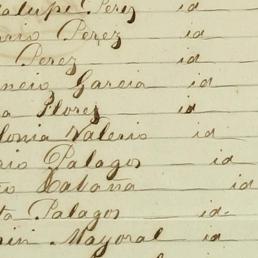 alupe Perez id
ario Perez id
Perez id
encio Garcia id
a Florez id
lonia Valerio id
rio Palagos id
io Cabaña id
ta Palagos id.
in Mayoral id